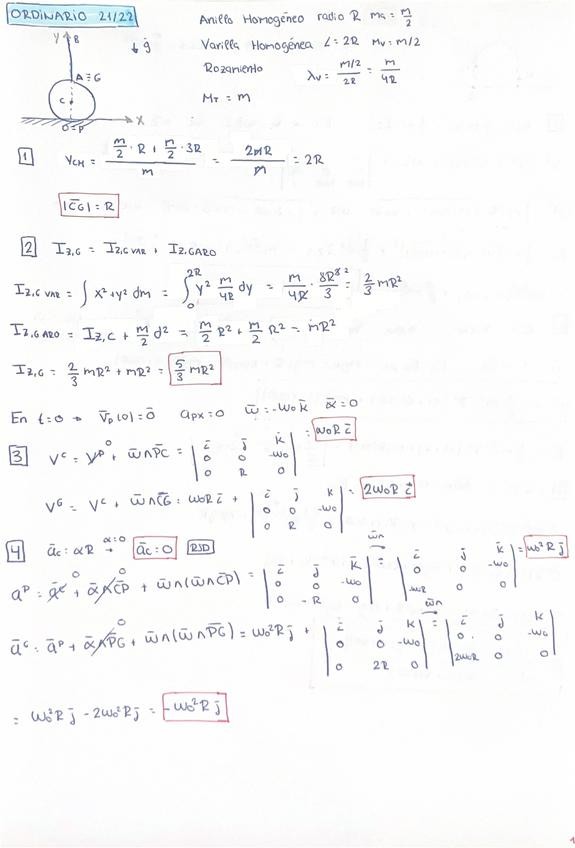 ORDINARIO 21/22
Anillo Homogéneo radio R m_a = m/2
Varilla Homogénea L = 2R M_v = m/2
Rozamiento λ_v = (m/2)/(2R) = m/(4R)
M_T = m
Y B ↓ḡ
A≡G
C
O=P X
1 Y_CM = (m/2 · R + m/2 · 3R)/m = 2mR/m = 2R
|C̄G| = R
2 I_z,G = I_z,G VAR + I_z,G ARO
I_z,G VAR = ∫ x²+y² dm = ∫₀^2R y² m/(4R) dy = m/(4R) · 8R³/3 = 2/3 mR²
I_z,G ARO = I_z,C + m/2 d² = m/2 R² + m/2 R² = mR²
I_z,G = 2/3 mR² + mR² = 5/3 mR²
En t=0 → V̄_p(0) = 0̄ a_px = 0 ω̄ = -ω₀ k̄ ᾱ = 0
3 V^C = V^P + ω̄∧P̄C = | ī j̄ k̄ ; 0 0 -ω₀ ; 0 R 0 | = ω₀R ī
V^G = V^C + ω̄∧C̄G = ω₀R ī + | ī j̄ k ; 0 0 -ω₀ ; 0 R 0 | = 2ω₀R ī
4 ā_c = αR α=0 → ā_c = 0 RSD
a^P = ā^C + ᾱ∧C̄P + ω̄∧(ω̄∧C̄P) = | ī j̄ k̄ ; 0 0 -ω₀ ; 0 -R 0 | ω̄∧ → = | ī j̄ k̄ ; 0 0 -ω₀ ; -ω₀R 0 0 | = ω₀²R j̄
ā^G = ā^P + ᾱ∧P̄G + ω̄∧(ω̄∧P̄G) = ω₀²R j̄ + | ī j̄ k ; 0 0 -ω₀ ; 0 2R 0 | ω̄∧ → = | ī j̄ k ; 0 0 -ω₀ ; 2ω₀R 0 0 |
= ω₀²R j̄ - 2ω₀²R j̄ = -ω₀²R j̄
1